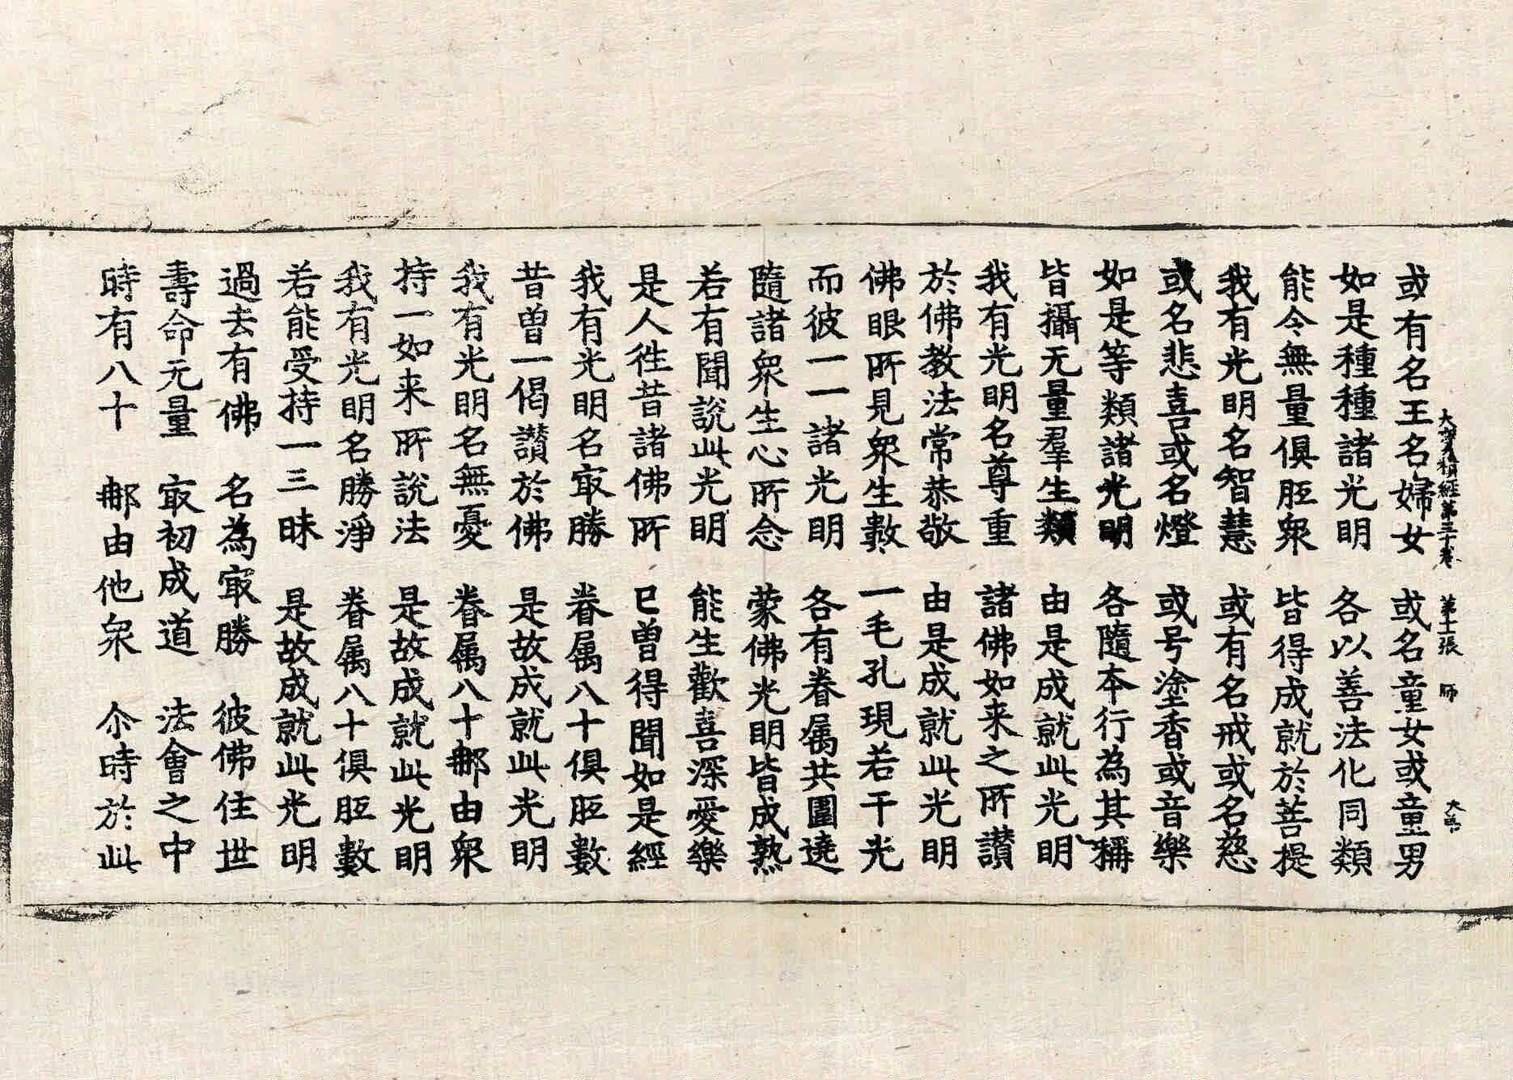 或有名王名婦女　或名童女或童男
如是種種諸光明　各以善法化同類
能令無量俱胝衆　皆得成就於菩提
我有光明名智慧　或有名戒或名慈
或名悲喜或名燈　或号塗香或音樂
如是等類諸光明　各隨本行為其稱
皆攝无量羣生類　由是成就此光明
我有光明名尊重　諸佛如来之所讃
於佛教法常恭敬　由是成就此光明
佛眼所見衆生數　一毛孔現若干光
而彼一一諸光明　各有眷属共圍遶
隨諸衆生心所念　蒙佛光明皆成熟
若有聞說此光明　能生歡喜深愛樂
是人徃昔諸佛所　已曾得聞如是經
我有光明名㝡勝　眷属八十俱胝數
昔曾一偈讃於佛　是故成就此光明
我有光明名無憂　眷属八十那由衆
持一如来所說法　是故成就此光明
我有光明名勝淨　眷属八十俱胝數
若能受持一三昧　是故成就此光明
過去有佛　名為㝡勝　彼佛住世
壽命无量　㝡初成道　法會之中
時有八十　那由他衆　尒時於此